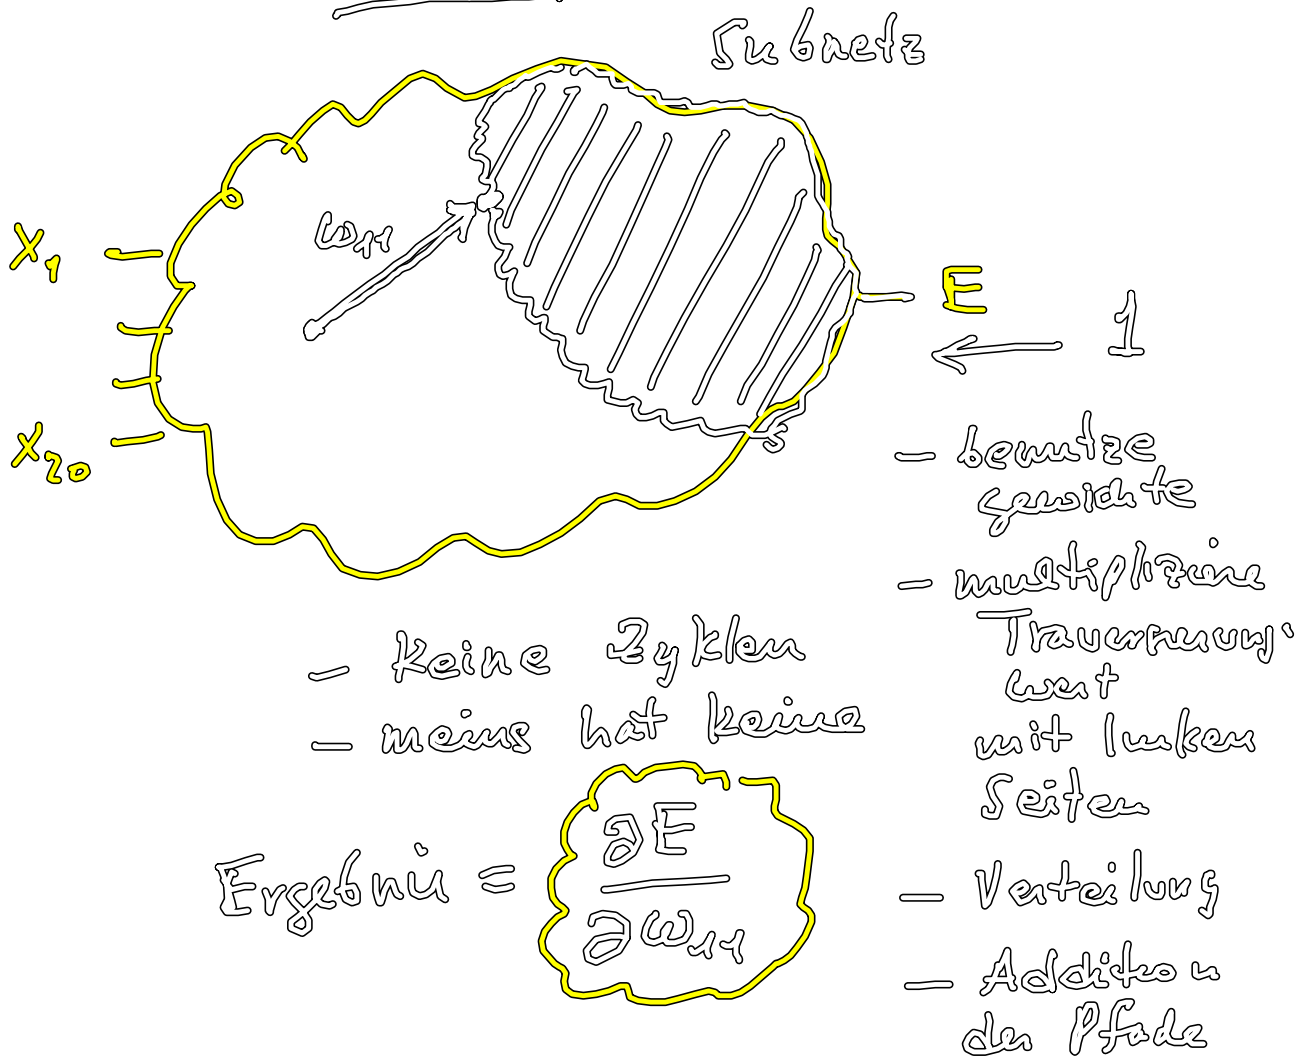 Subnetz
x₁
ω₁₁
E
1
x₂₀
– benutze
gewichte
– multipliziere
Traversierungs
wert
mit linken
Seiten
– Verteilung
– Addition
der Pfade
– Keine Zyklen
– meins hat keine
Ergebnis = ∂E
∂ω₁₁